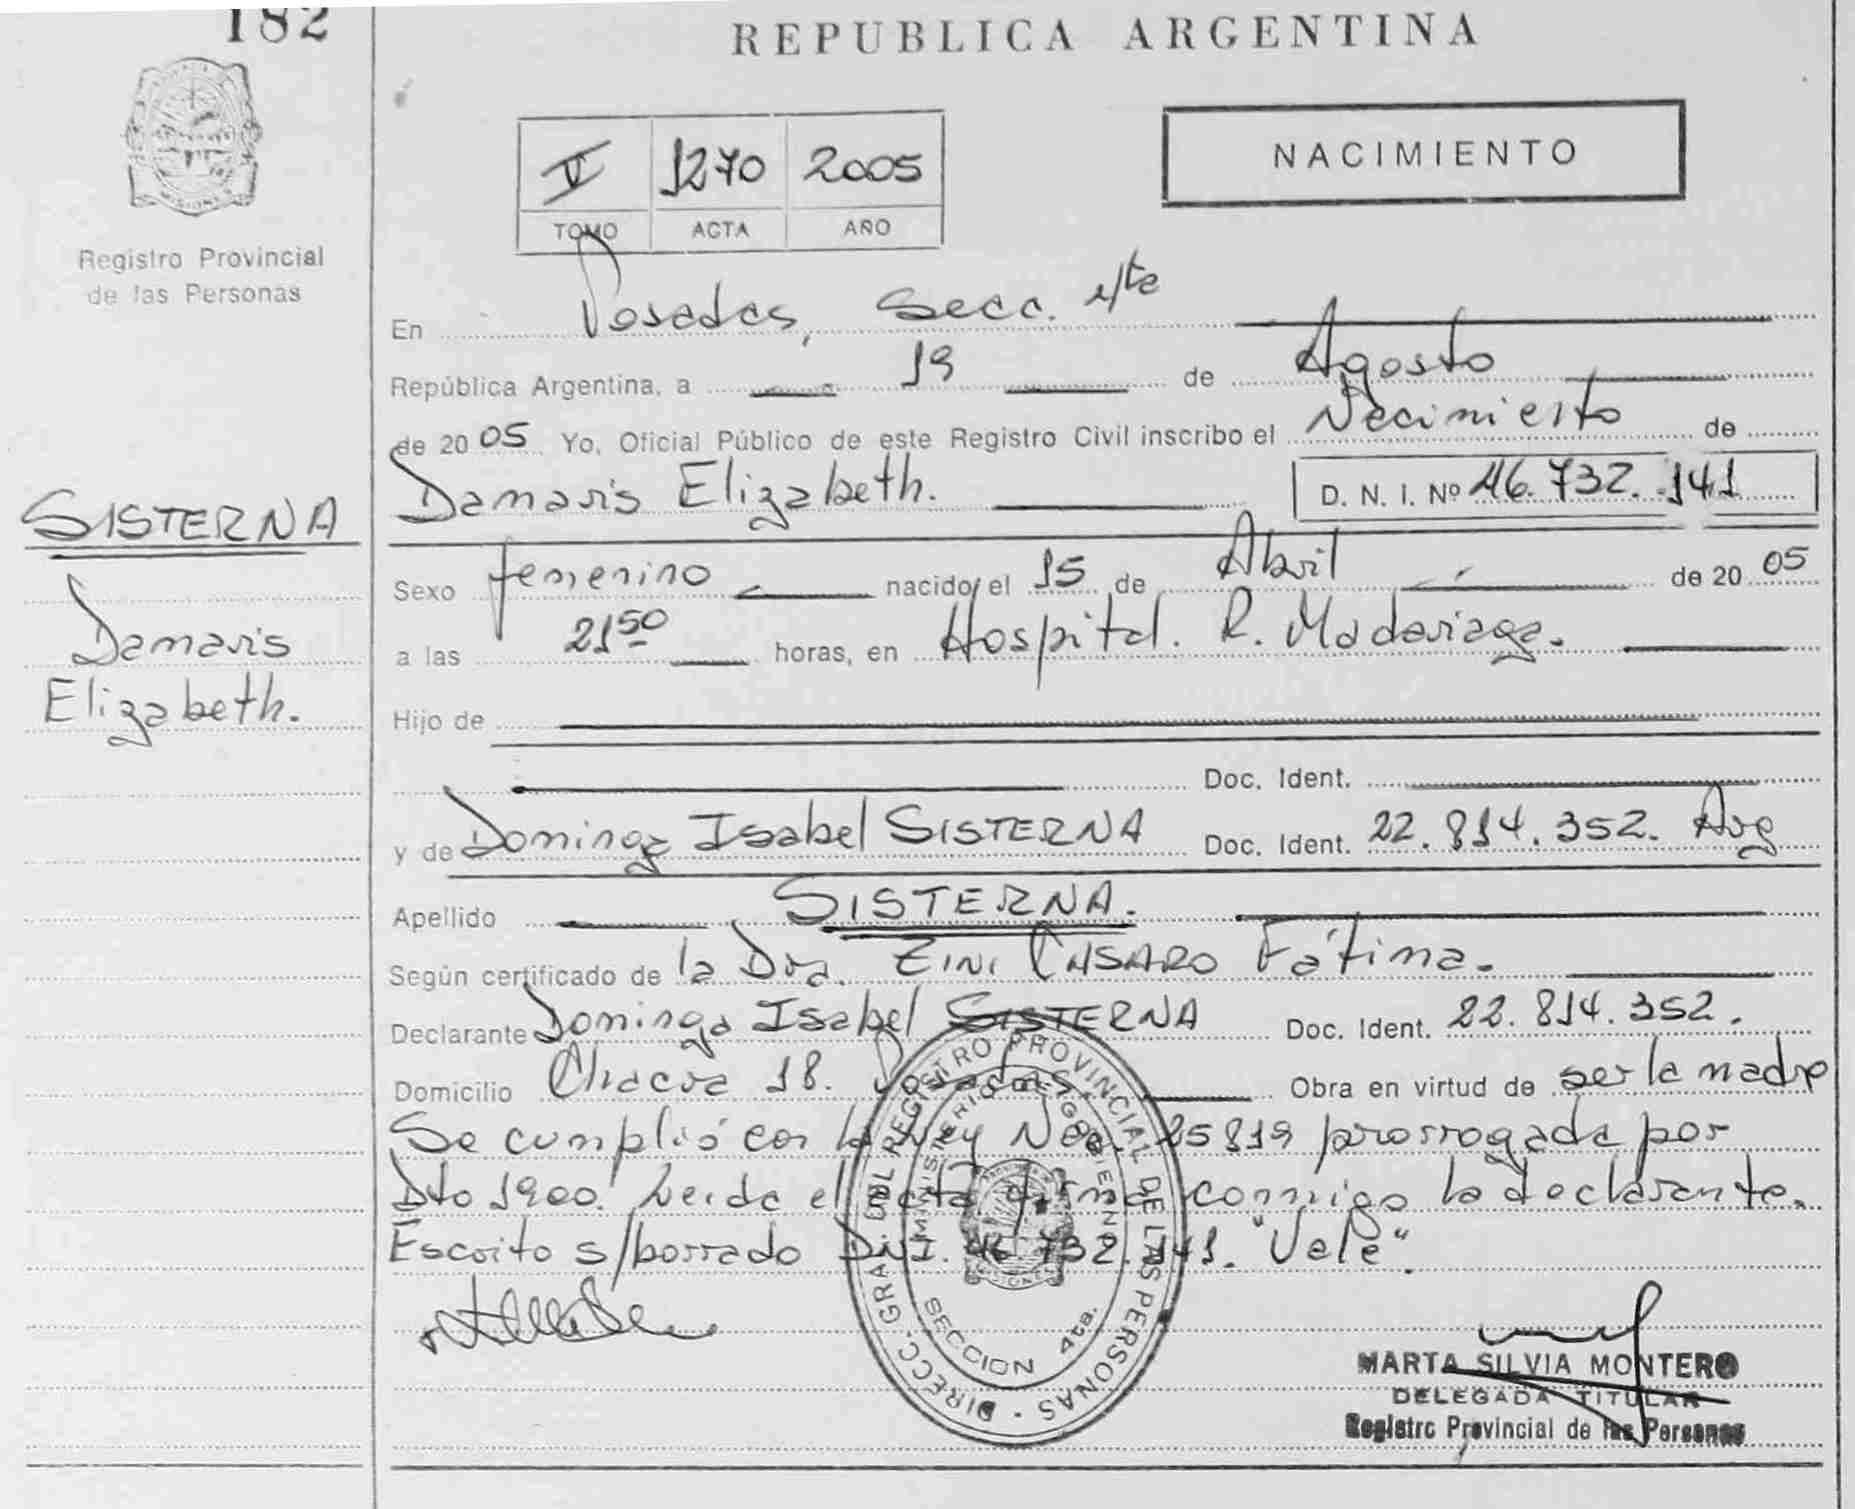 182
REPUBLICA ARGENTINA
Registro Provincial
de las Personas
V 1270 2005
TOMO ACTA AÑO
NACIMIENTO
SISTERNA
Damaris
Elizabeth.
En Posadas, Secc. 4ta
República Argentina, a 19 de Agosto
de 2005 Yo, Oficial Público de este Registro Civil inscribo el Nacimiento de
Damaris Elizabeth. D. N. I. Nº 46.732.141
Sexo femenino nacido/ el 15 de Abril de 2005
a las 21 50 horas, en Hospital. R. Madariaga.
Hijo de
Doc. Ident.
y de Dominga Isabel SISTERNA Doc. Ident. 22.814.352. Arg
Apellido SISTERNA.
Según certificado de la Dra. ZINI CASARO Fátima.
Declarante Dominga Isabel SISTERNA Doc. Ident. 22.814.352.
Domicilio Chacra 18. Posadas. Obra en virtud de ser la madre
Se cumplió con la Ley Nº 25819 prorrogada por
Dto 1900. Leida el acta firma conmigo la declarante.
Escrito s/borrado D.N.I. 46.732.141. "Vale".
DIRECC. GRAL. DEL REGISTRO PROVINCIAL DE LAS PERSONAS
MINISTERIO DE GOBIERNO
MISIONES
SECCION 4ta.
MARTA SILVIA MONTERO
DELEGADA TITULAR
Registro Provincial de las Personas